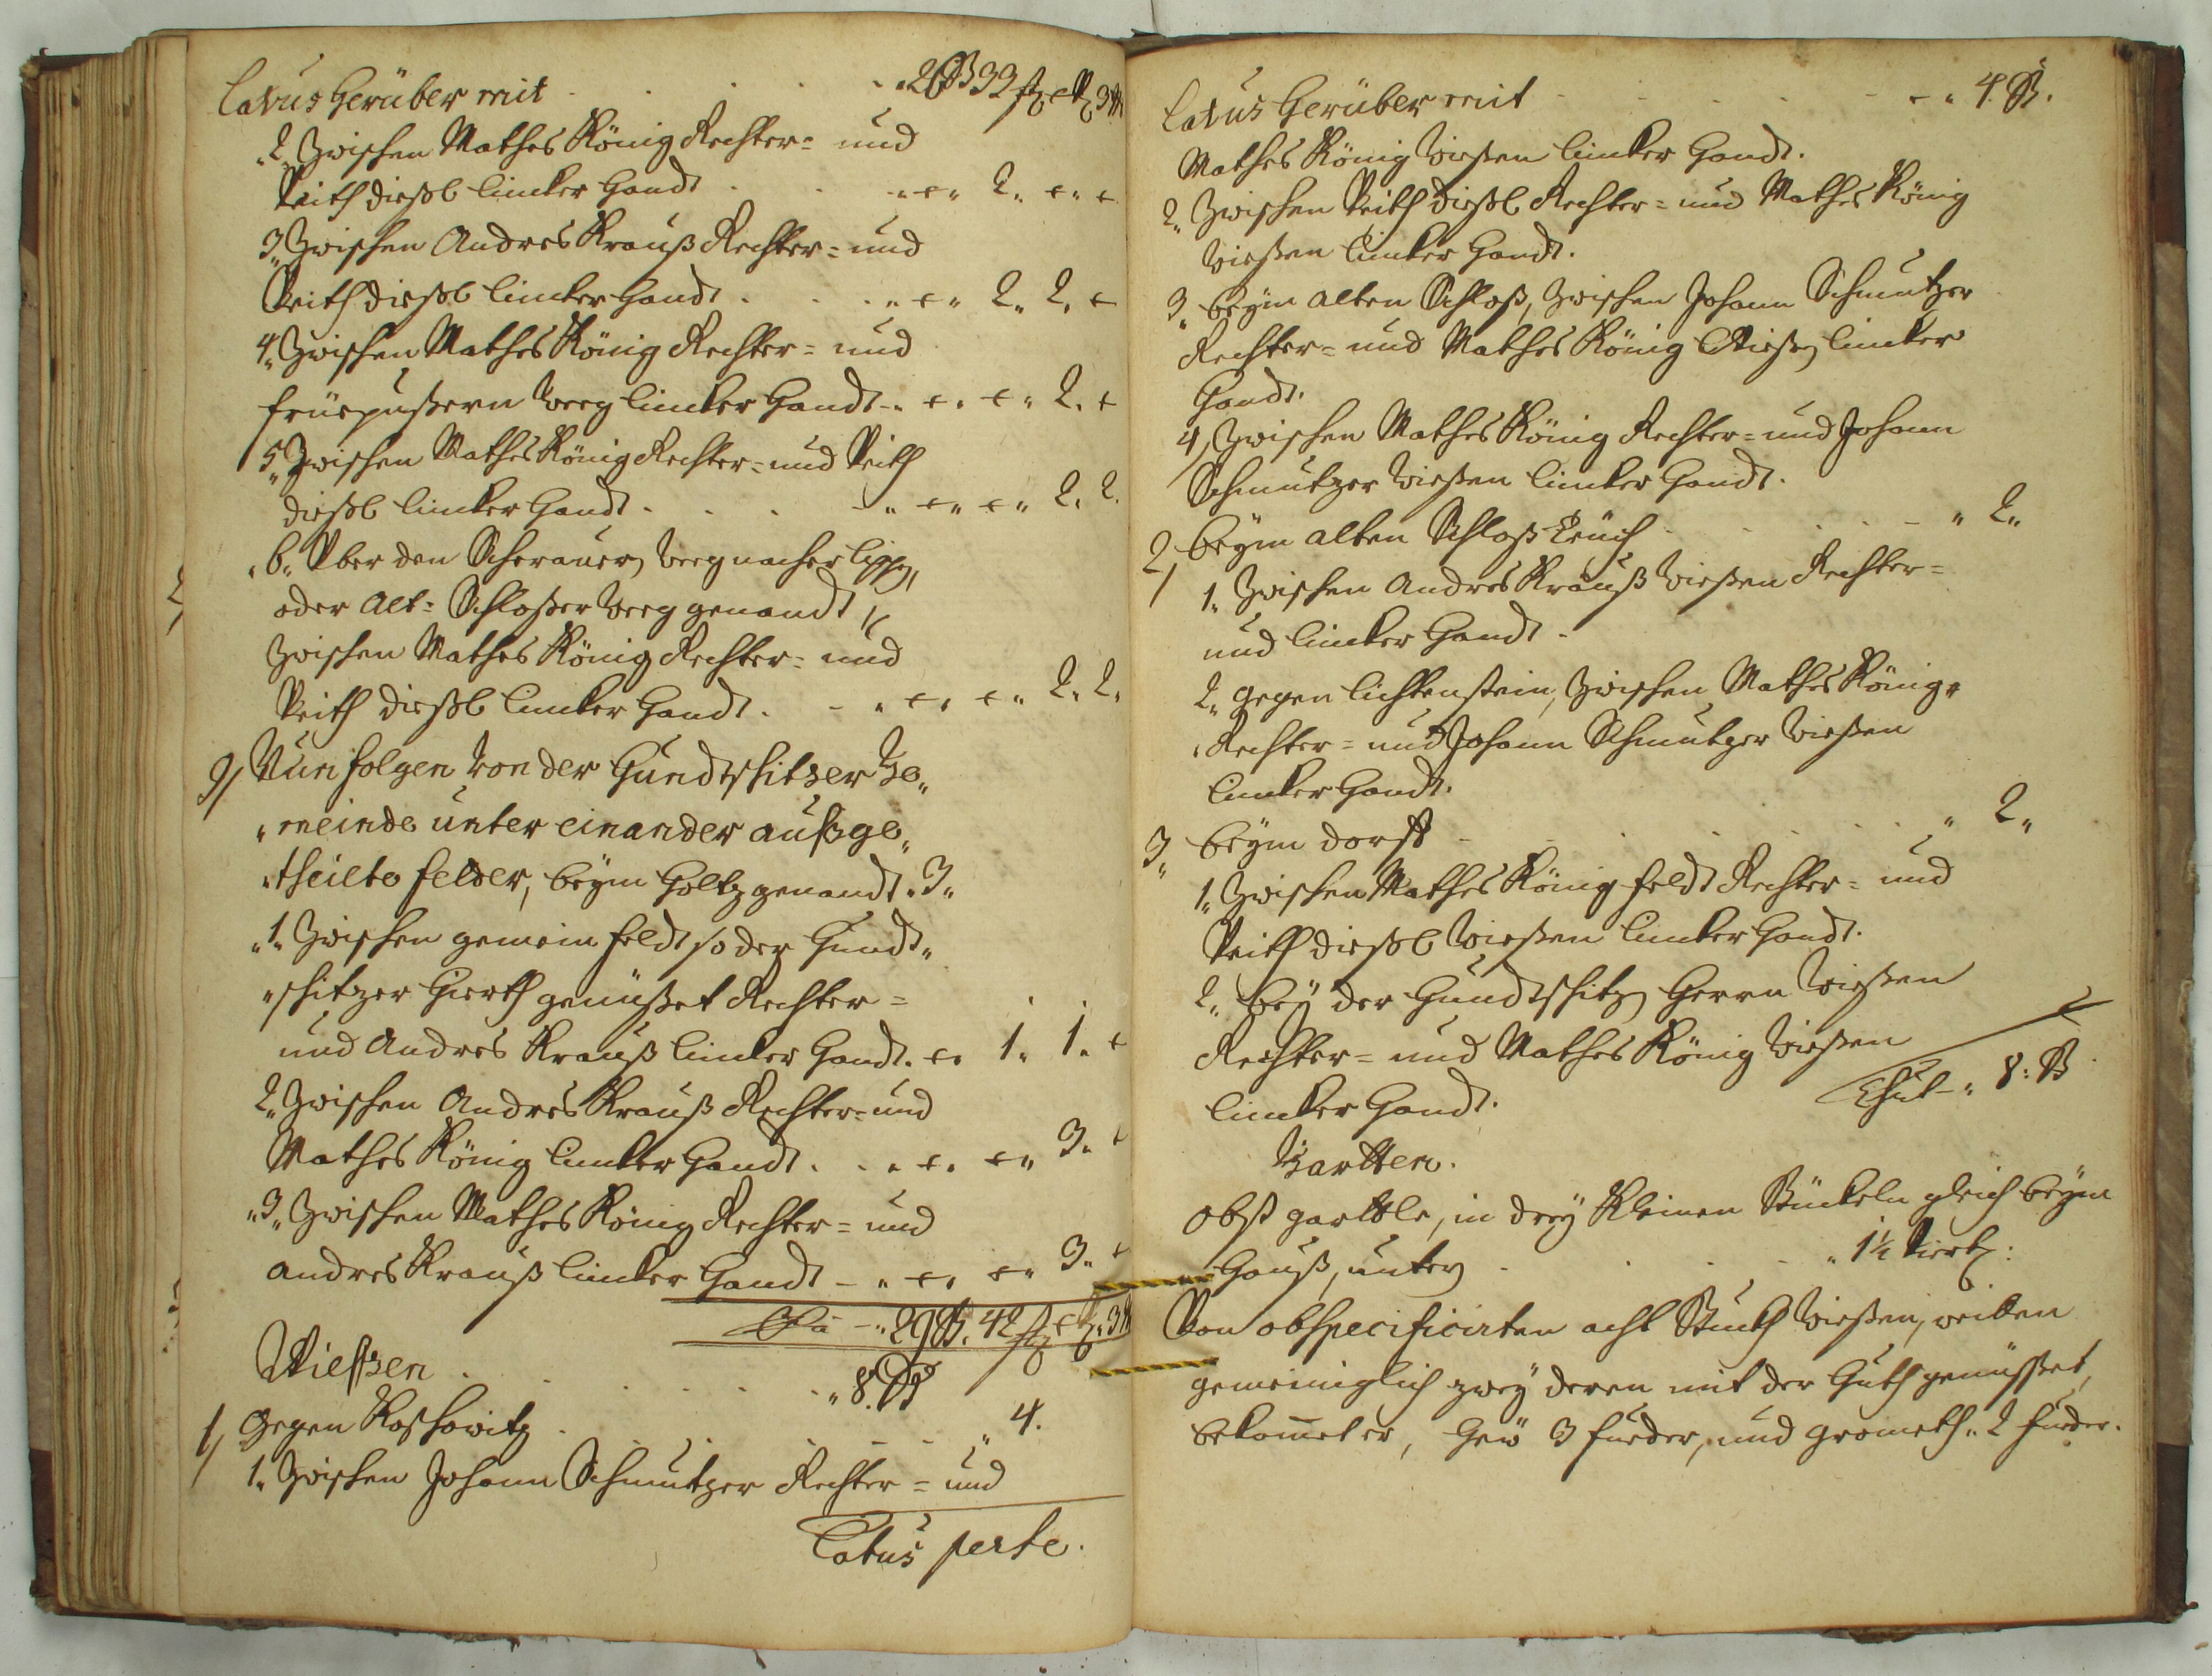 Latus herüber mit . . . . „ 26 B 33
„2„ Zwischen Mathes König Rechter= und
Veith Dießl lincker Handt . . . „ „ 2. „
3„ Zwischen Andres Krauß Rechter= und
Veith Dießl lincker Handt . . . „ „ 2„ 2.
4„ Zwischen Mathes König Rechter= und
Weeg lincker Handt „ „ „ 2.
5„ Zwischen Mathes König Rechter= und Veith
Dießl lincker Handt . . . „ „ „ 2. 2.
„6„ Über den Scherauer Weeg nacher
oder Alt= Schloßer Weeg genandt
Zwischen Mathes König Rechter= und
Veith Dießl lincker Handt . „ „ „ 2. 2.
9/ Nun folgen von der Gundtschitzer Ge„
„meinde unter einander außge„
„theilte felder, beÿm Holtz genandt „3„
„1„ Zwischen gemein feldt so der Gundt„
„schitzer Hierth genüßet Rechter=
und Andres Krauß lincker Handt. „ 1„ 1.
2„ Zwischen Andres Krauß Rechter= und
Mathes König lincker Handt . . „ „ „ 3„
„3„ Zwischen Mathes König Rechter= und
Andres Krauß lincker Handt - „ „ „ 3„
„ 29 B. 42
Wießen . . . . . „ 8. B
1/ Gegen Roschowitz . . . . . „ 4.
1„ Zwischen Johann Schmutzer Rechter= und
Latus perte.
Latus herüber mit . . . . . „ 4. B.
Mathes König Wießen lincker Handt.
2„ Zwischen Veith Dießl Rechter= und Mathes König
Wießen lincker Handt.
3„ beÿm alten Schloß, Zwischen Johann Schmutzer
Rechter= und Mathes König Wießen lincker
Handt.
4/ Zwischen Mathes König Rechter= und Johann
Schmutzer Wießen lincker Handt.
2/ beÿm alten Schloß Teüch . . . . „ 2„
1„ Zwischen Andres Krauß Wießen Rechter=
und lincker Handt.
2„ gegen Lichtenstein, Zwischen Mathes König„
„Rechter= und Johann Schmutzer Wießen
lincker Handt.
3„ beÿm dorff . . . . . „ 2„
1„ Zwischen Mathes König feldt Rechter= und
Veith Dießl Wießen lincker Handt.
2„ beÿ der Gundtschitz Herrn Wießen
Rechter= und Mathes König Wießen
lincker Handt.
Thut - „ 8: B
Gartten.
Obst garttle, in dreÿ kleinen Stückeln gleich beÿm
Hauß, unter . . . . „ 1½ Viertl:
Von obspecificirten acht Stuckh Wießen, weilen
gemeiniglich zweÿ deren mit der Huth genüsset,
bekom̄et er, Heü 3 fueder, und Grometh „ 2 fueder.